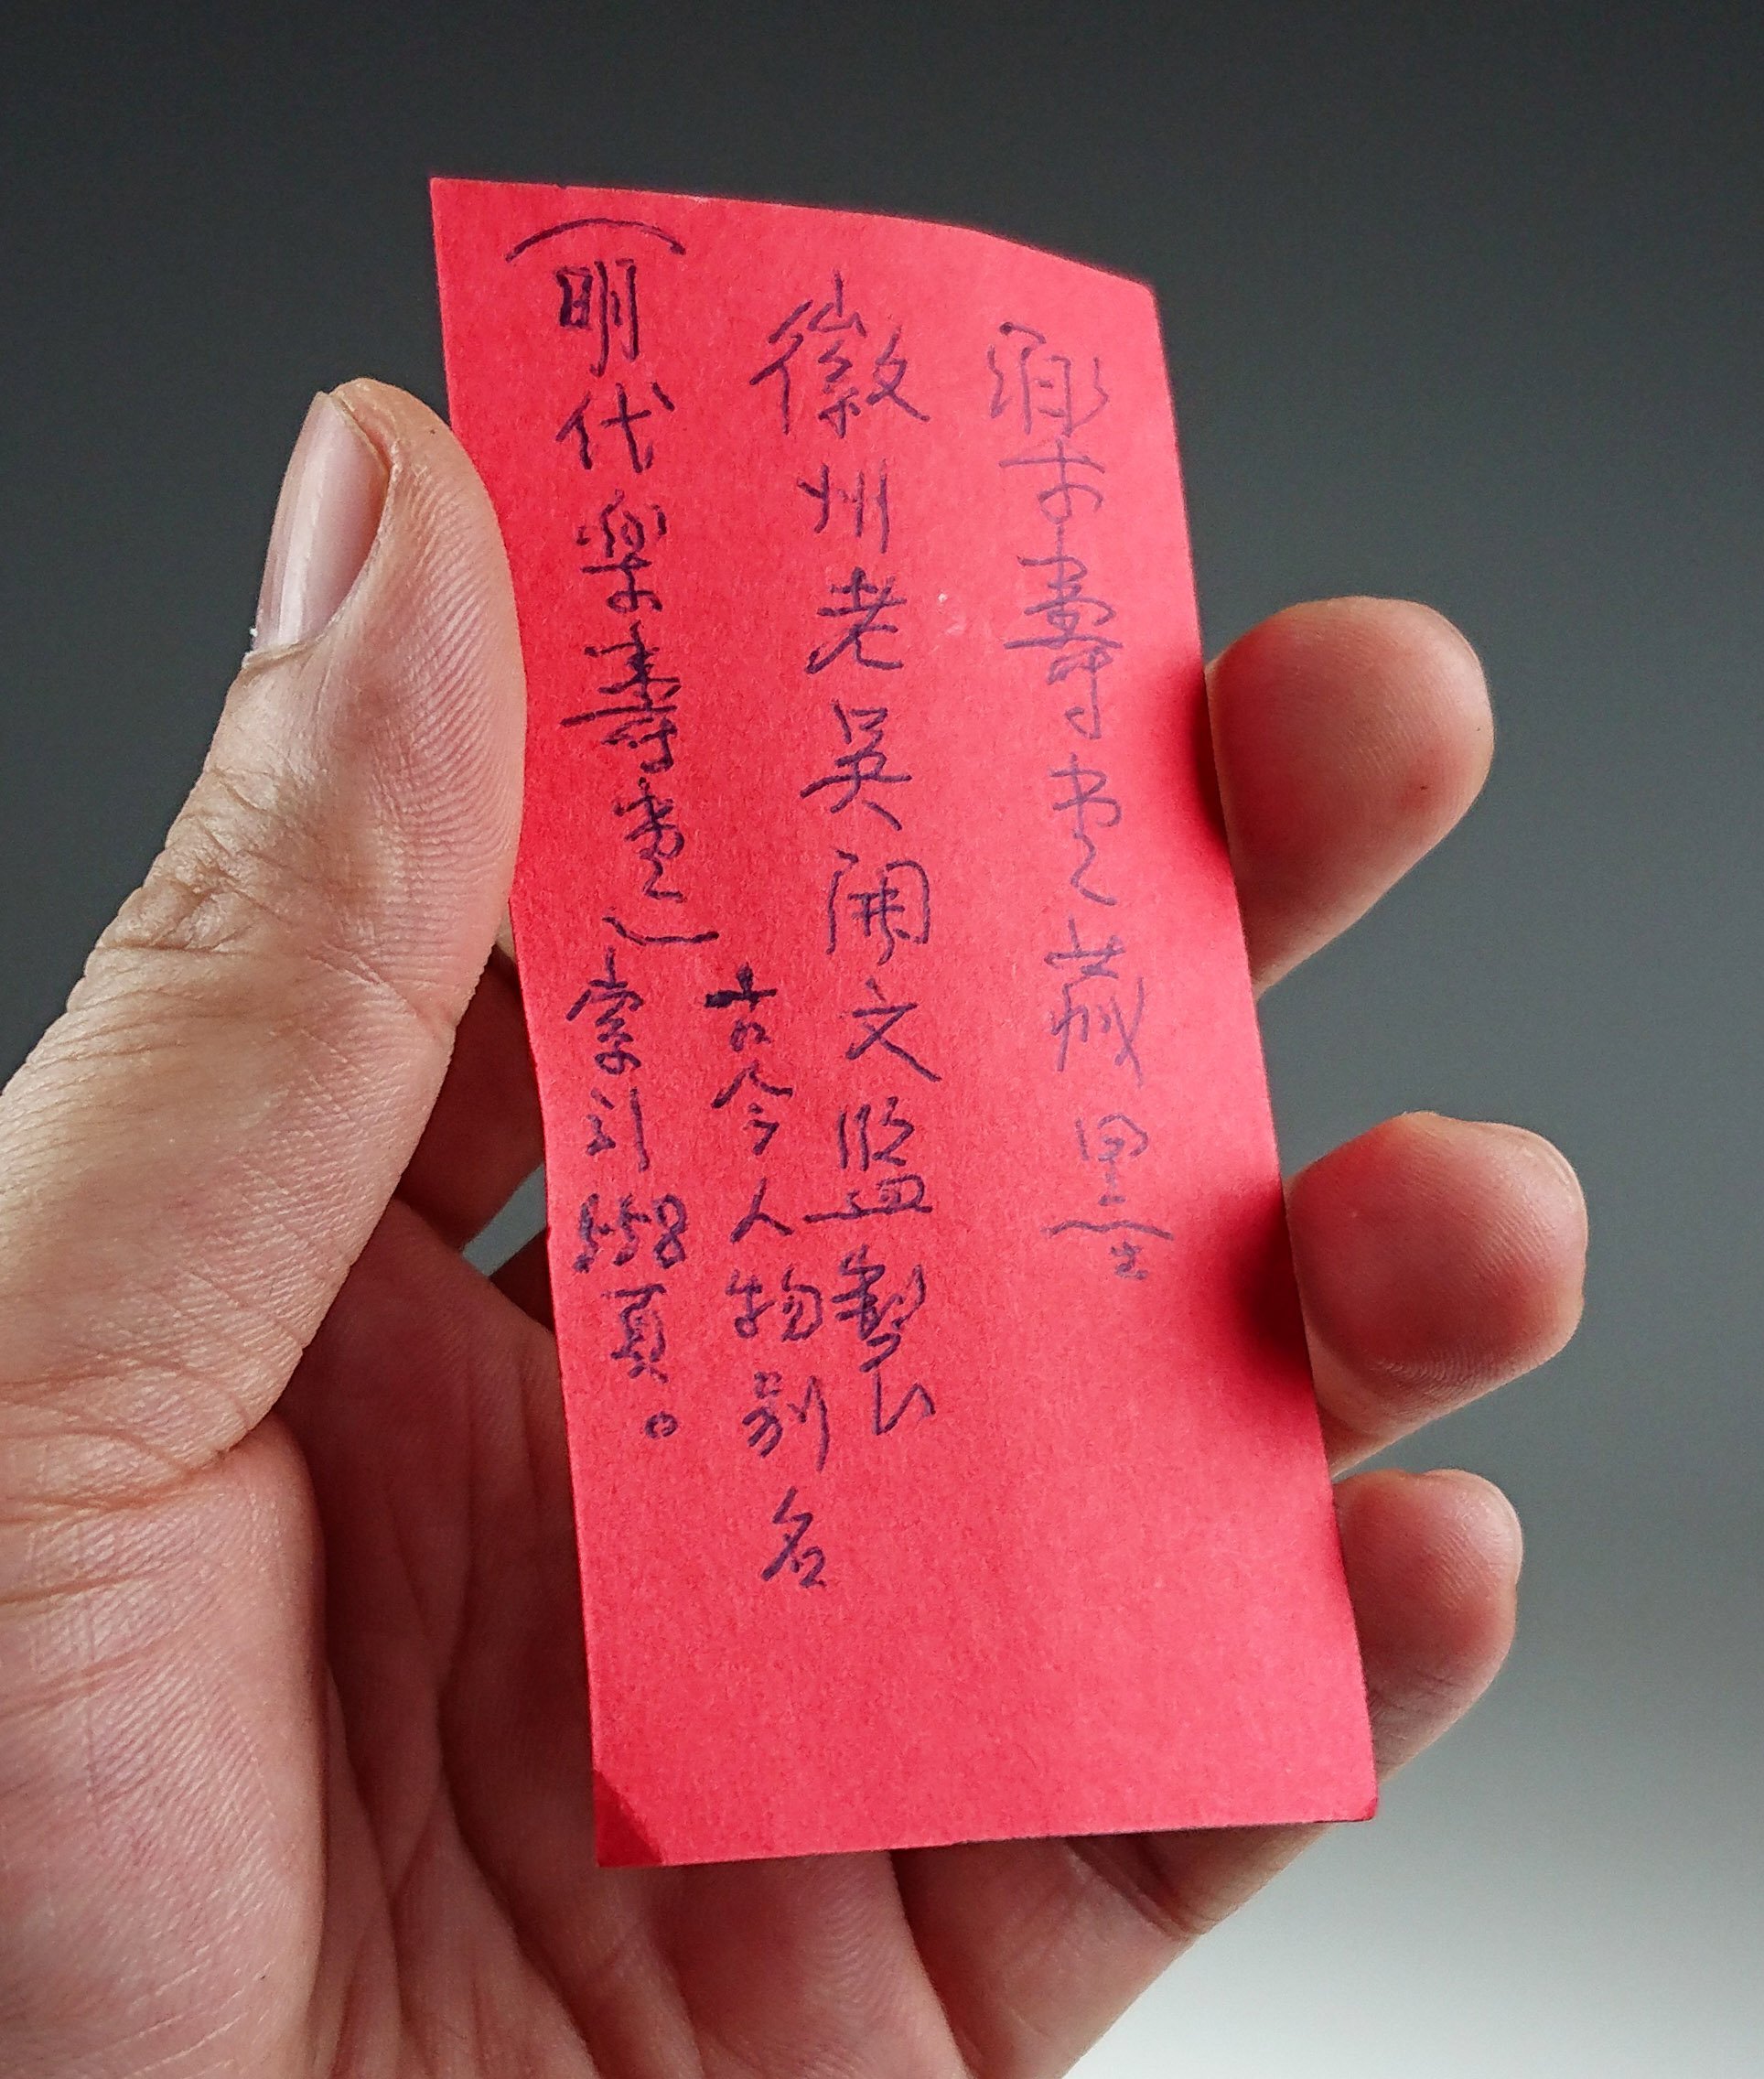 樂壽堂藏墨
徽州老吳開文監製
古今人物别名
(明代樂壽堂)索引558頁。